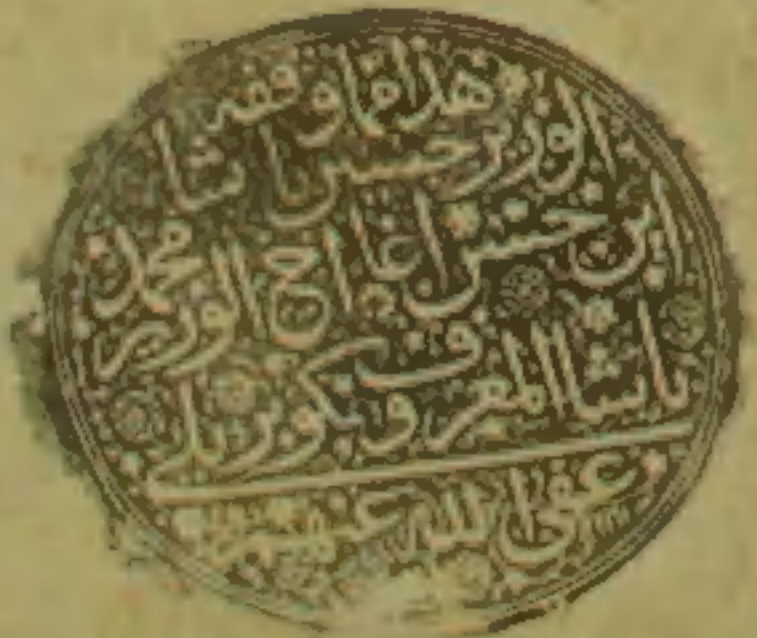 هذا مما وقفه
الوزير حسن باشا
ابن حسن اغا اخ الوزير محمد
باشا المعروف بكوبريلي
عفى الله عنهم